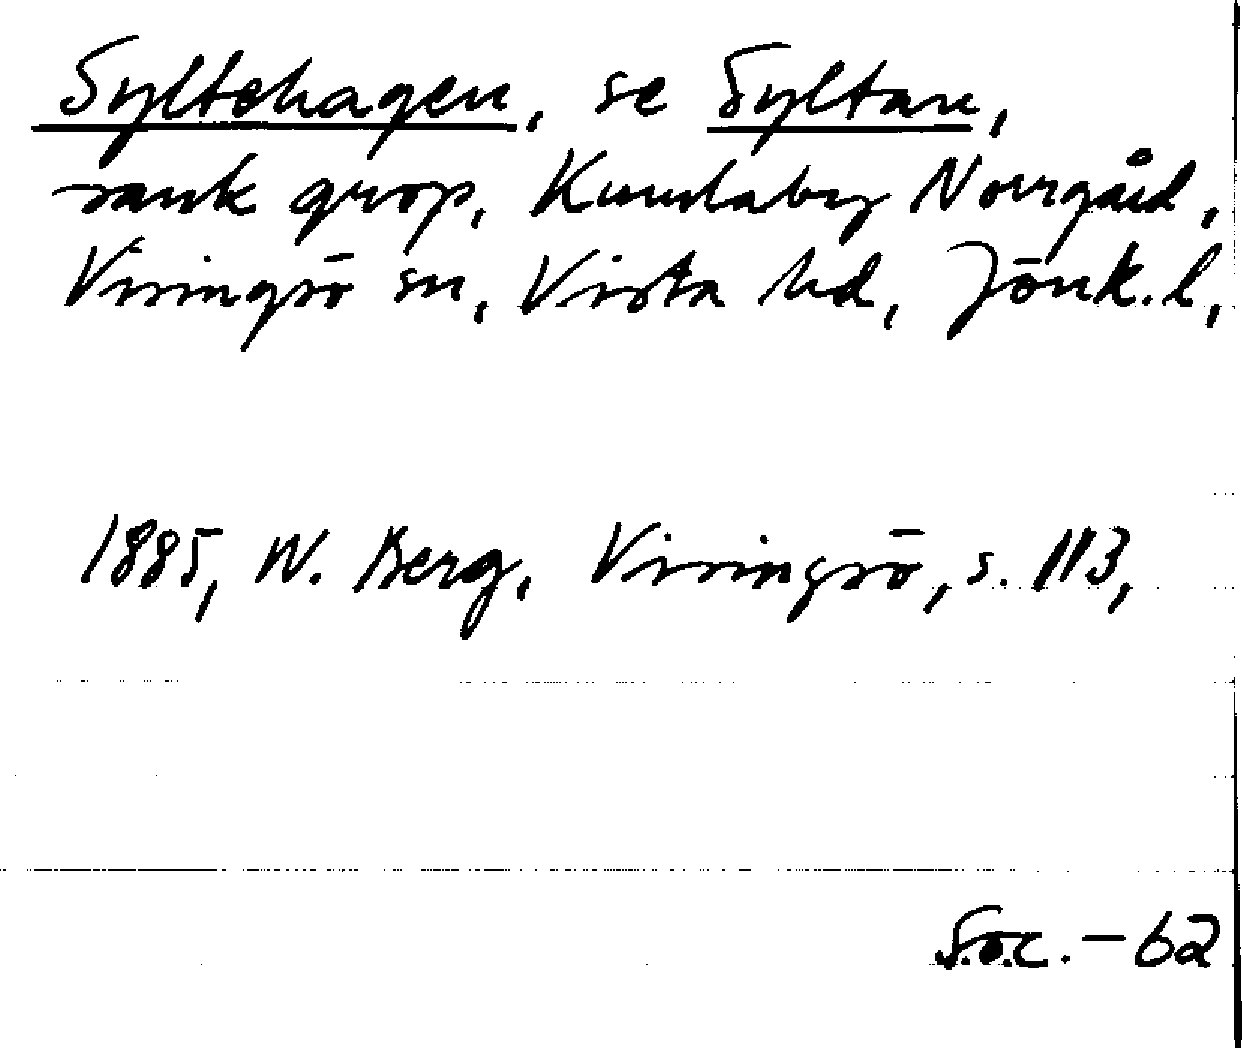 Syltehagen, se Syltan,
sank grop, Kumlaby Norrgård,
Visingsö sn, Vista hd, Jönk. l,
1885, W. Berg, Visingsö, s. 113,
S.o.c. - 62